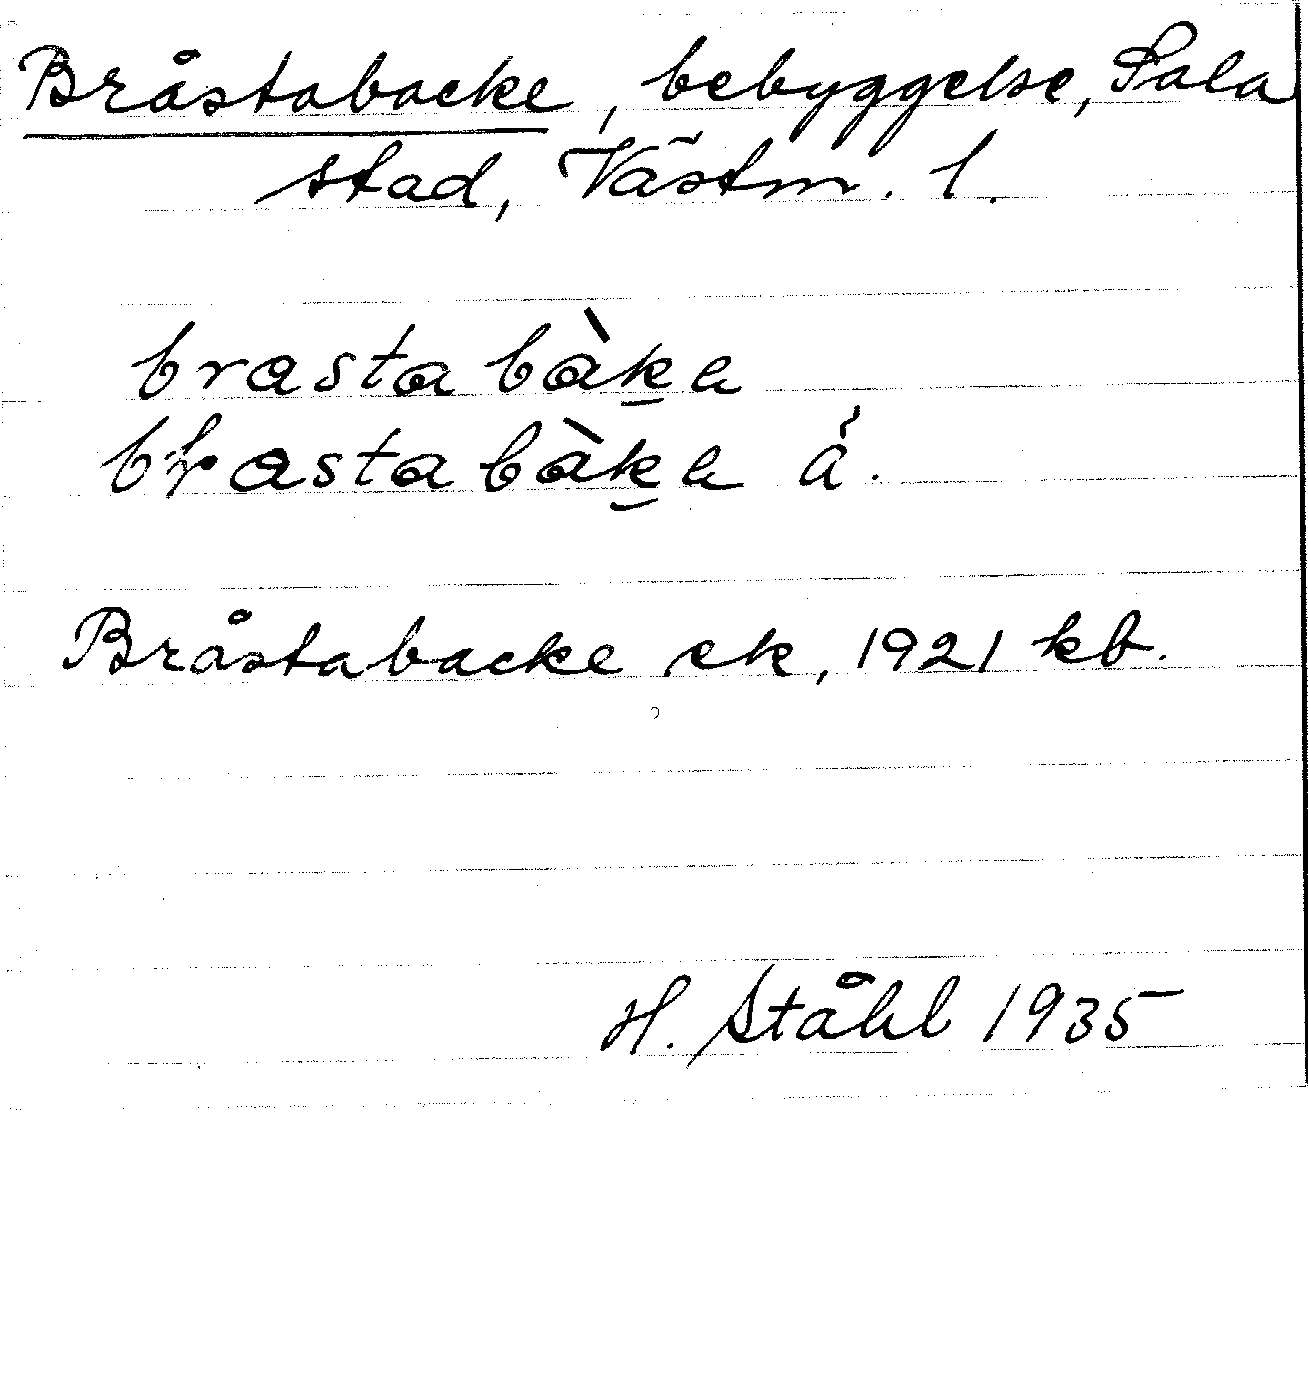 Bråstabacke, bebyggelse, Sala
stad, Västm. l.
brastabàka
brastabàka å.
Bråstabacke ek, 1921 kb.
H. Ståhl 1935